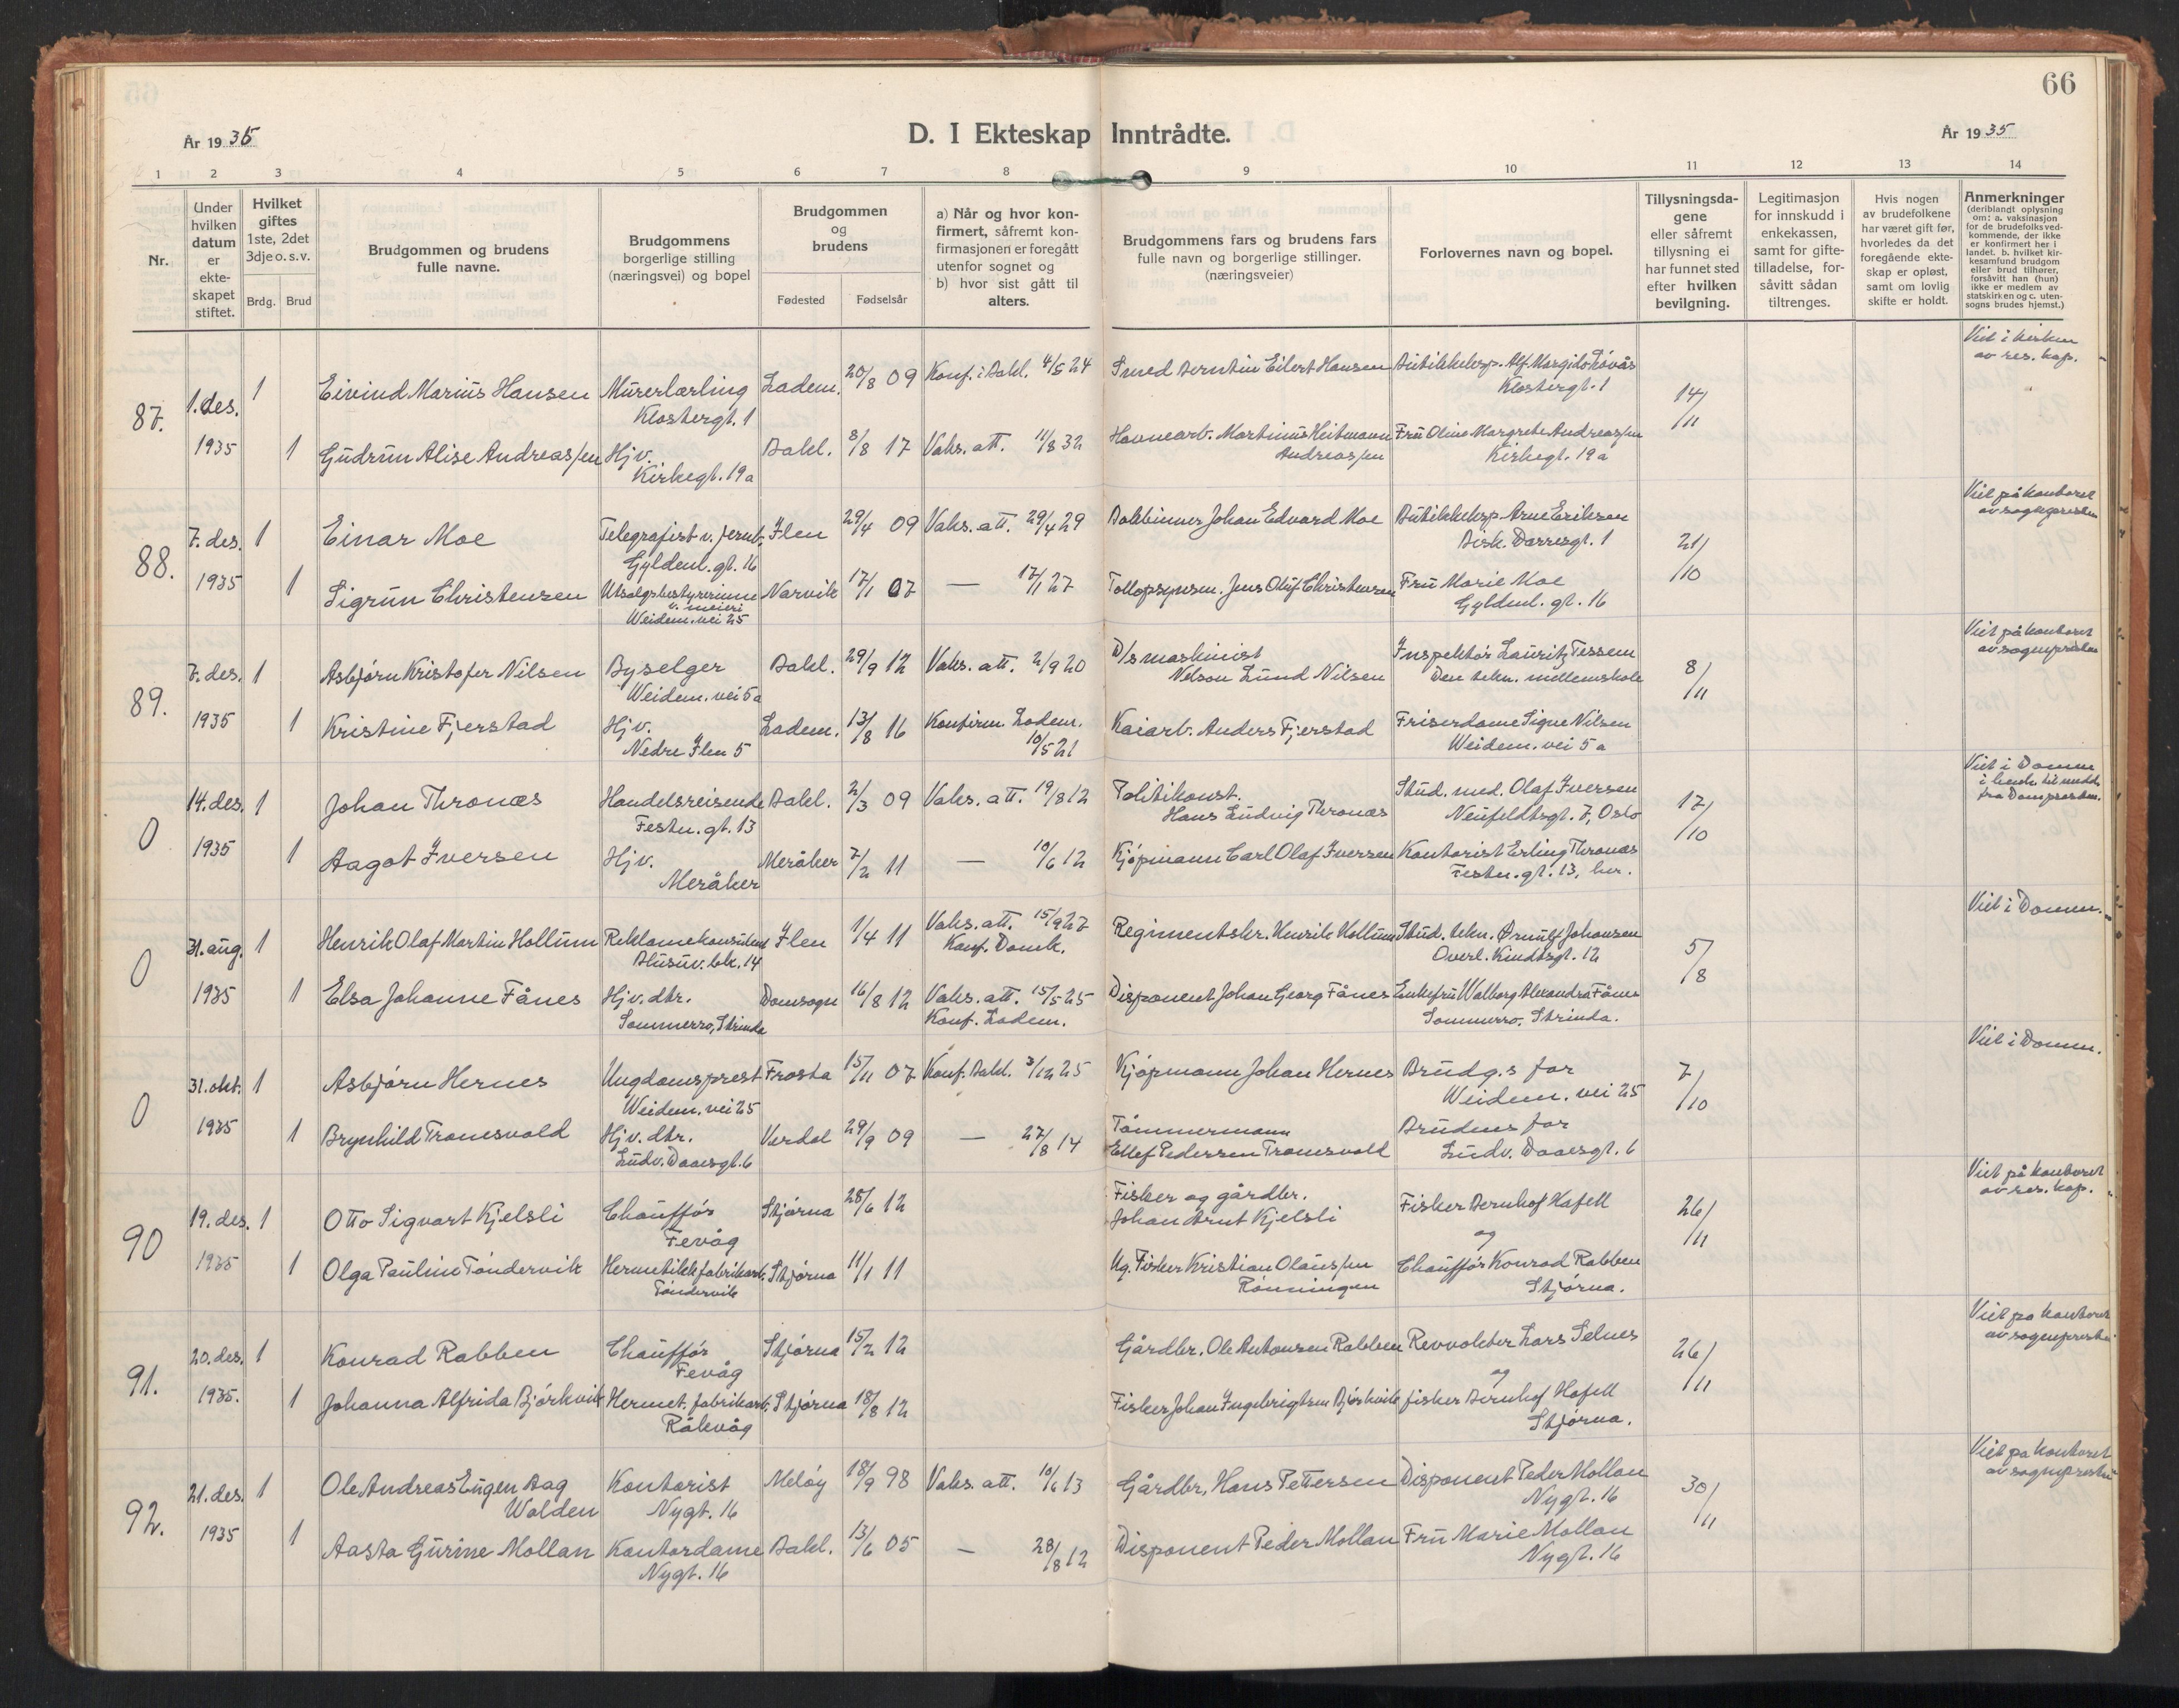 66
År 1935
D. I Ekteskap Inntrådte.
År 1935
1 2 3 4 5 6 7 8 9 10 11 12 13 14
Nr.
Under hvilken datum er ekteskapet stiftet.
Hvilket giftes 1ste, 2det 3dje o. s. v.
Brdg. Brud
Brudgommen og brudens fulle navne.
Brudgommens borgerlige stilling (næringsvei) og bopel
Brudgommen og brudens
Fødested Fødselsår
a) Når og hvor konfirmert, såfremt konfirmasjonen er foregått utenfor sognet og
b) hvor sist gått til alters.
Brudgommens fars og brudens fars fulle navn og borgerlige stillinger. (næringsveier)
Forlovernes navn og bopel.
Tillysningsdagene eller såfremt tillysning ei har funnet sted efter hvilken bevilgning.
Legitimasjon for innskudd i enkekassen, samt for giftetilladelse, forsåvitt sådan tiltrenges.
Hvis nogen av brudefolkene har været gift før, hvorledes da det foregående ekteskap er opløst, samt om lovlig skifte er holdt.
Anmerkninger (deriblandt oplysning om: a. vaksinasjon for de brudefolks vedkommende, der ikke er konfirmert her i landet. b. hvilket kirkesamfund brudgom eller brud tilhører, forsåvitt han (hun) ikke er medlem av statskirken og c. utensogns brudes hjemst.)
87. 1. des. 1 Eivind Marius Hansen Murerlærling Ladem. 20/8 09 Konf. i Bakl. 4/5 24 Smed Berntin Eilert Hansen Butikkeksp. Alf Margido Løvås 14/11 Viet i kirken
Klostergt. 1 Klostergt. 1 av res. kap.
1935 1 Gudrun Alise Andreassen Hjv. Bakl. 8/8 17 Vaks. att. 11/8 32 Havnearb. Martinus Heitmann Fru Oline Margrete Andreassen
Kirkegt. 19a Andreassen Kirkegt. 19a
88. 7. des. 1 Einar Moe Telegrafist v. jernb. Ilen 29/4 09 Vaks. att. 29/4 29 Johan Edvard Moe Butikkeksp. Arne Eriksen 21/10 Viet på kontoret
Gyldenl. gt. 16 Bisk. Darresgt. 1 av sognepresten
1935 1 Sigrun Christensen Utsalgsbestyrerinne Narvik 17/1 07 — 17/1 27 Tollopsynsm. Jens Oluf Christensen Fru Marie Moe
v. meieri
Weidem. vei 25 Gyldenl. gt. 16
89. 7. des. 1 Asbjørn Kristofer Nilsen Byselger Bakl. 29/9 12 Vaks. att. 2/9 20 D/s maskinist Inspektør Lauritz Tessem 8/11 Viet på kontoret
Weidem. vei 5a Nelson Lund Nilsen Den tekn. mellemskole av sognepresten
1935 1 Kristine Fjerstad Hjv. Ladem. 13/8 16 Konfirm. Ladem. Kaiarb. Anders Fjerstad Friserdame Signe Nilsen
Nedre Ilen 5 10/5 21 Weidem. vei 5a
0 14. des. 1 Johan Thronæs Handelsreisende Bakl. 2/3 09 Vaks. att. 19/8 12 Politikonst. Stud. med. Olaf Iversen 17/10 Viet i Domen
Festn. gt. 13 Hans Ludvig Thronæs Neufeldtsgt. 7, Oslo i henh. til medd. fra Domprosten.
1935 1 Aagot Iversen Hjv. Meråker 7/2 11 — 10/6 12 Kjøpmann Carl Olaf Iversen Kontorist Erling Thronæs
Meråker Festn. gt. 13, her.
0 31. aug. 1 Henrik Olaf Martin Hollum Reklamekonsulent Ilen 1/4 11 Vaks. att. 15/9 27 Regimentskr. Henrik Hollum Stud. tekn. Ørnulf Johansen 5/8 Viet i Domen.
Blusuv. bk. 14 Konf. Domk. Overl. Kindtsgt. 12
1935 1 Elsa Johanne Fånes Hjv. dtr. Domsogn 16/8 12 Vaks. att. 15/5 25 Disponent Johan Georg Fånes Enkefru Walborg Alexandra Fånes
Sommerro, Strinda Konf. Ladem. Sommerro, Strinda.
0 31. okt. 1 Asbjørn Hernes Ungdomsprest Frosta 15/11 07 Konf. Bakl. 3/12 25 Kjøpmann Johan Hernes Brudg.s far 7/10 Viet i Domen.
Weidem. vei 25 Weidem. vei 25
1935 1 Brynhild Tromsvold Hjv. dtr. Verdal 29/9 09 — 27/8 14 Tømmermann Brudens far
Ludv. Daaesgt. 6 Ellef Pedersen Tromsvold Ludv. Daaesgt. 6
90 19. des. 1 Otto Sigvart Kjelsli Chauffør Stjørna 28/6 12 Fisker og gårdbr. Fisker Bernhof Hafell 26/11 Viet på kontoret
Fevåg Johan Arnt Kjelsli og av res. kap.
1935 1 Olga Pauline Tøndervik Hermetikkfabrikarb. Stjørna 11/1 11 Ug. Fisker Kristian Olaussen Chauffør Konrad Rabben
Tøndervik Rønningen Stjørna.
91. 20. des. 1 Konrad Rabben Chauffør Stjørna 15/2 12 Gårdbr. Ole Antonsen Rabben Revvokter Lars Selnes 26/11 Viet på kontoret
Fevåg og av sognepresten
1935. 1 Johanna Alfrida Bjørkvik Hermet. fabrikarb. Stjørna 18/8 12 Fisker Johan Ingebrigtsen Bjørkvik fisker Bernhof Hafell
Råkvåg Stjørna.
92. 21. des. 1 Ole Andreas Eugen Aag Kontorist Meløy 18/9 98 Vaks. att. 10/6 13 Gårdbr. Hans Pettersen Disponent Peder Mollan 30/11 Viet på kontoret
Wolden Nygt. 16 Nygt. 16 av sognepresten
1935 1 Aasta Gurine Mollan Kontordame Bakl. 13/6 05 — 28/8 12 Disponent Peder Mollan Fru Marie Mollan
Nygt. 16 Nygt. 16